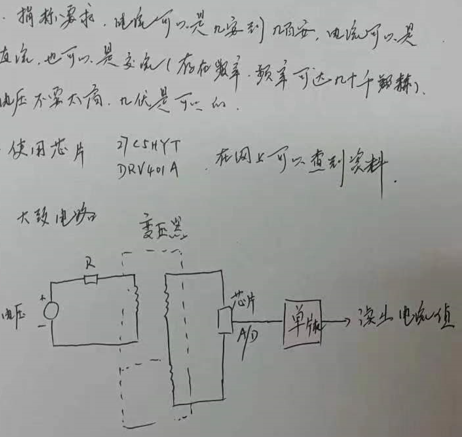 指标要求，电流可以是几安到几百安，电流可以是
直流，也可以是交流（存在频率，频率可达几十千赫兹）.
电压不要太高，几伏是可以的
使用芯片 27C5HYT
DRV401A 在网上可以查到资料.
大致电路
变压器
R
电压
芯片
A/D
单片机
→ 读出电流值